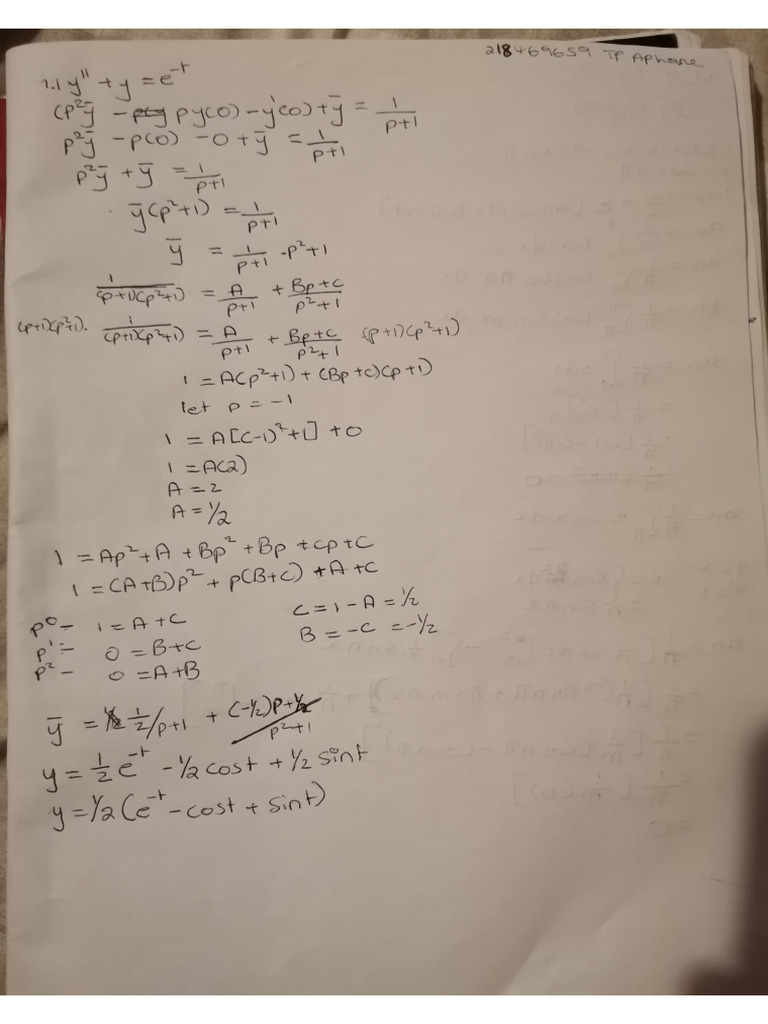 218469659 TP Aphane
1.1 y'' + y = e^-t
(p²ȳ - py(0) - y'(0) + ȳ = 1/(p+1)
p²ȳ - p(0) - 0 + ȳ = 1/(p+1)
p²ȳ + ȳ = 1/(p+1)
ȳ(p²+1) = 1/(p+1)
ȳ = 1/(p+1) · p²+1
1/((p+1)(p²+1)) = A/(p+1) + (Bp+C)/(p²+1)
(p+1)(p²+1) · 1/((p+1)(p²+1)) = A/(p+1) + (Bp+C)/(p²+1) (p+1)(p²+1)
1 = A(p²+1) + (Bp+C)(p+1)
let p = -1
1 = A[(-1)²+1] + 0
1 = A(2)
A = 2
A = 1/2
1 = Ap² + A + Bp² + Bp + Cp + C
1 = (A+B)p² + p(B+C) + A + C
p⁰ - 1 = A + C C = 1 - A = 1/2
p¹ - 0 = B + C B = -C = -1/2
p² - 0 = A + B
ȳ = 1/2/p+1 + (-1/2)p + 1/2 / p²+1
y = 1/2 e^-t - 1/2 cost + 1/2 sint
y = 1/2 (e^-t - cost + sint)